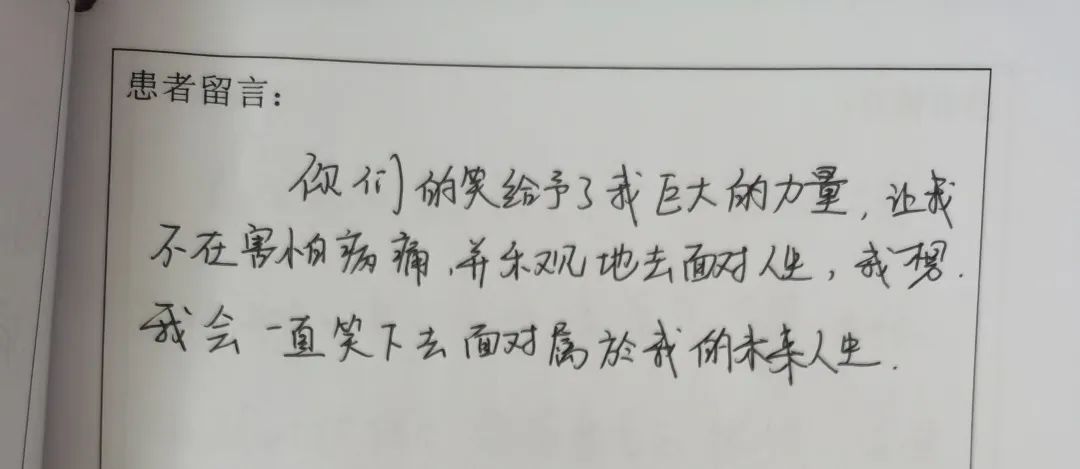 患者留言：
你们的笑给予了我巨大的力量，让我
不在害怕病痛，并乐观地去面对人生，我想，
我会一直笑下去面对属於我的未来人生.